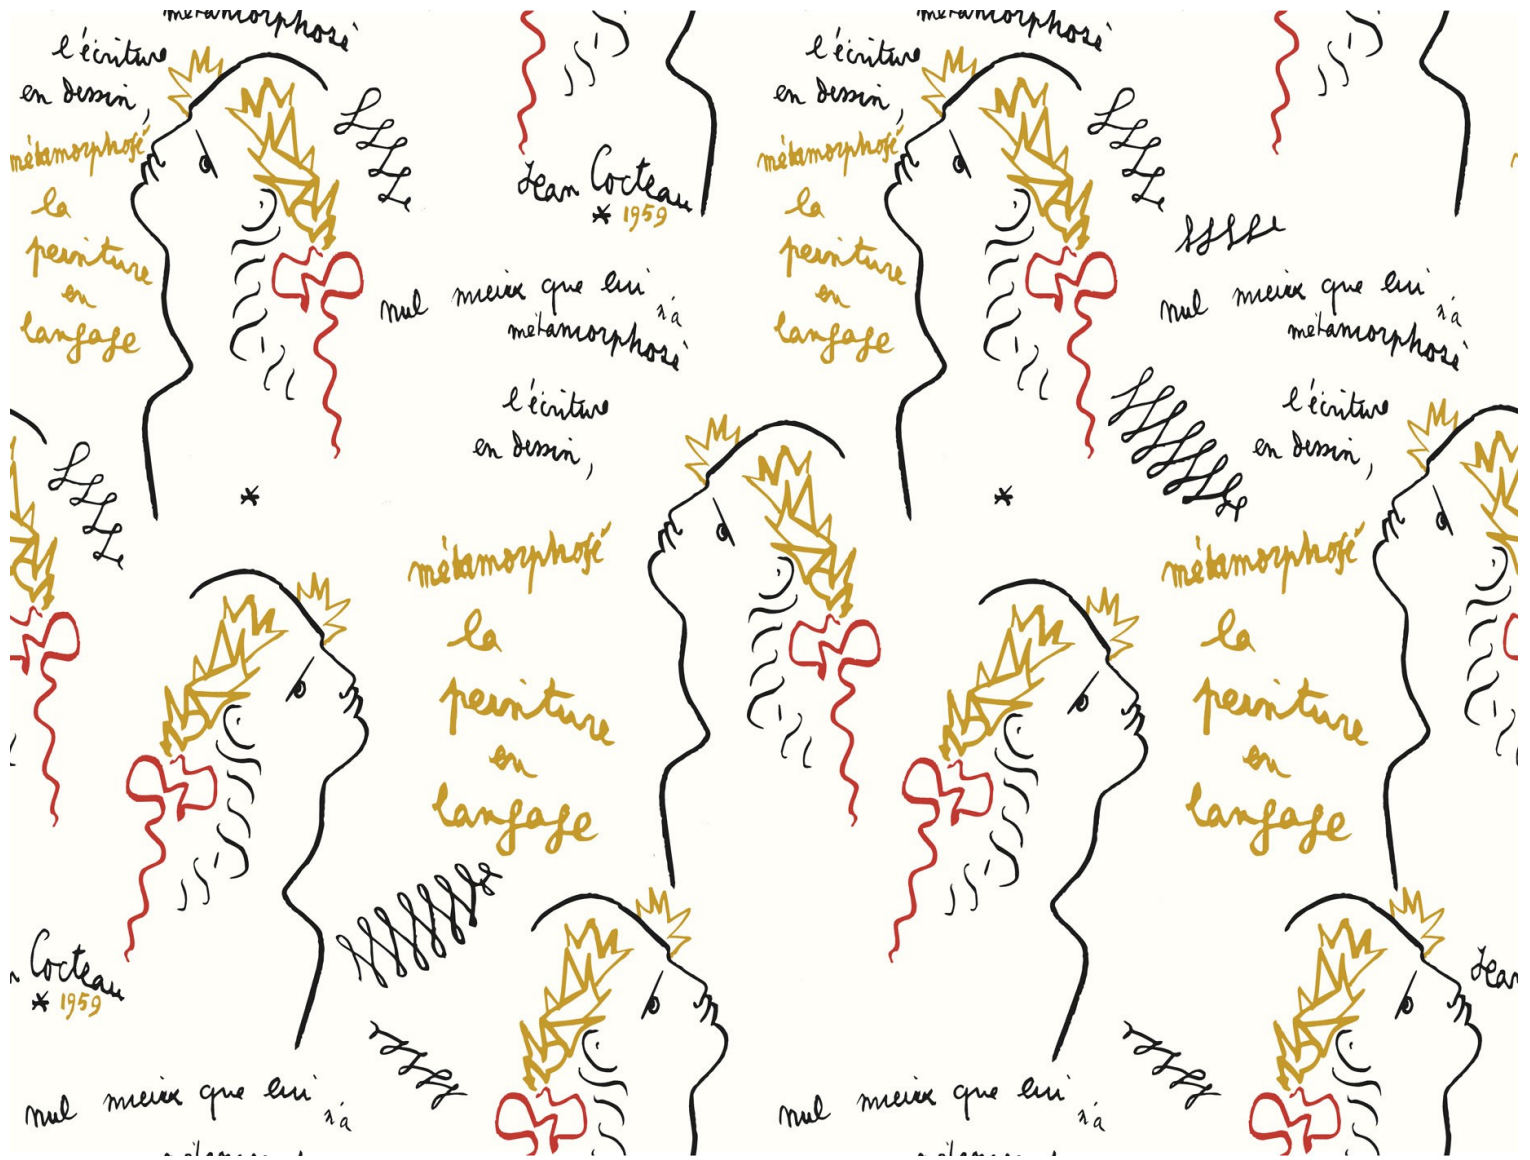 métamorphosé
métamorphosé
l'écriture
en dessin,
métamorphosé
la
peinture
en
langage
Jean Cocteau
* 1959
l'écriture
en dessin,
métamorphosé
la
peinture
en
langage
nul mieux que lui
n'a
métamorphosé
l'écriture
en dessin,
métamorphosé
la
peinture
en
langage
nul mieux que lui
n'a
métamorphosé
l'écriture
en dessin,
métamorphosé
la
peinture
en
langage
Cocteau
* 1959
Jean
nul mieux que lui
n'a
nul mieux que lui
n'a